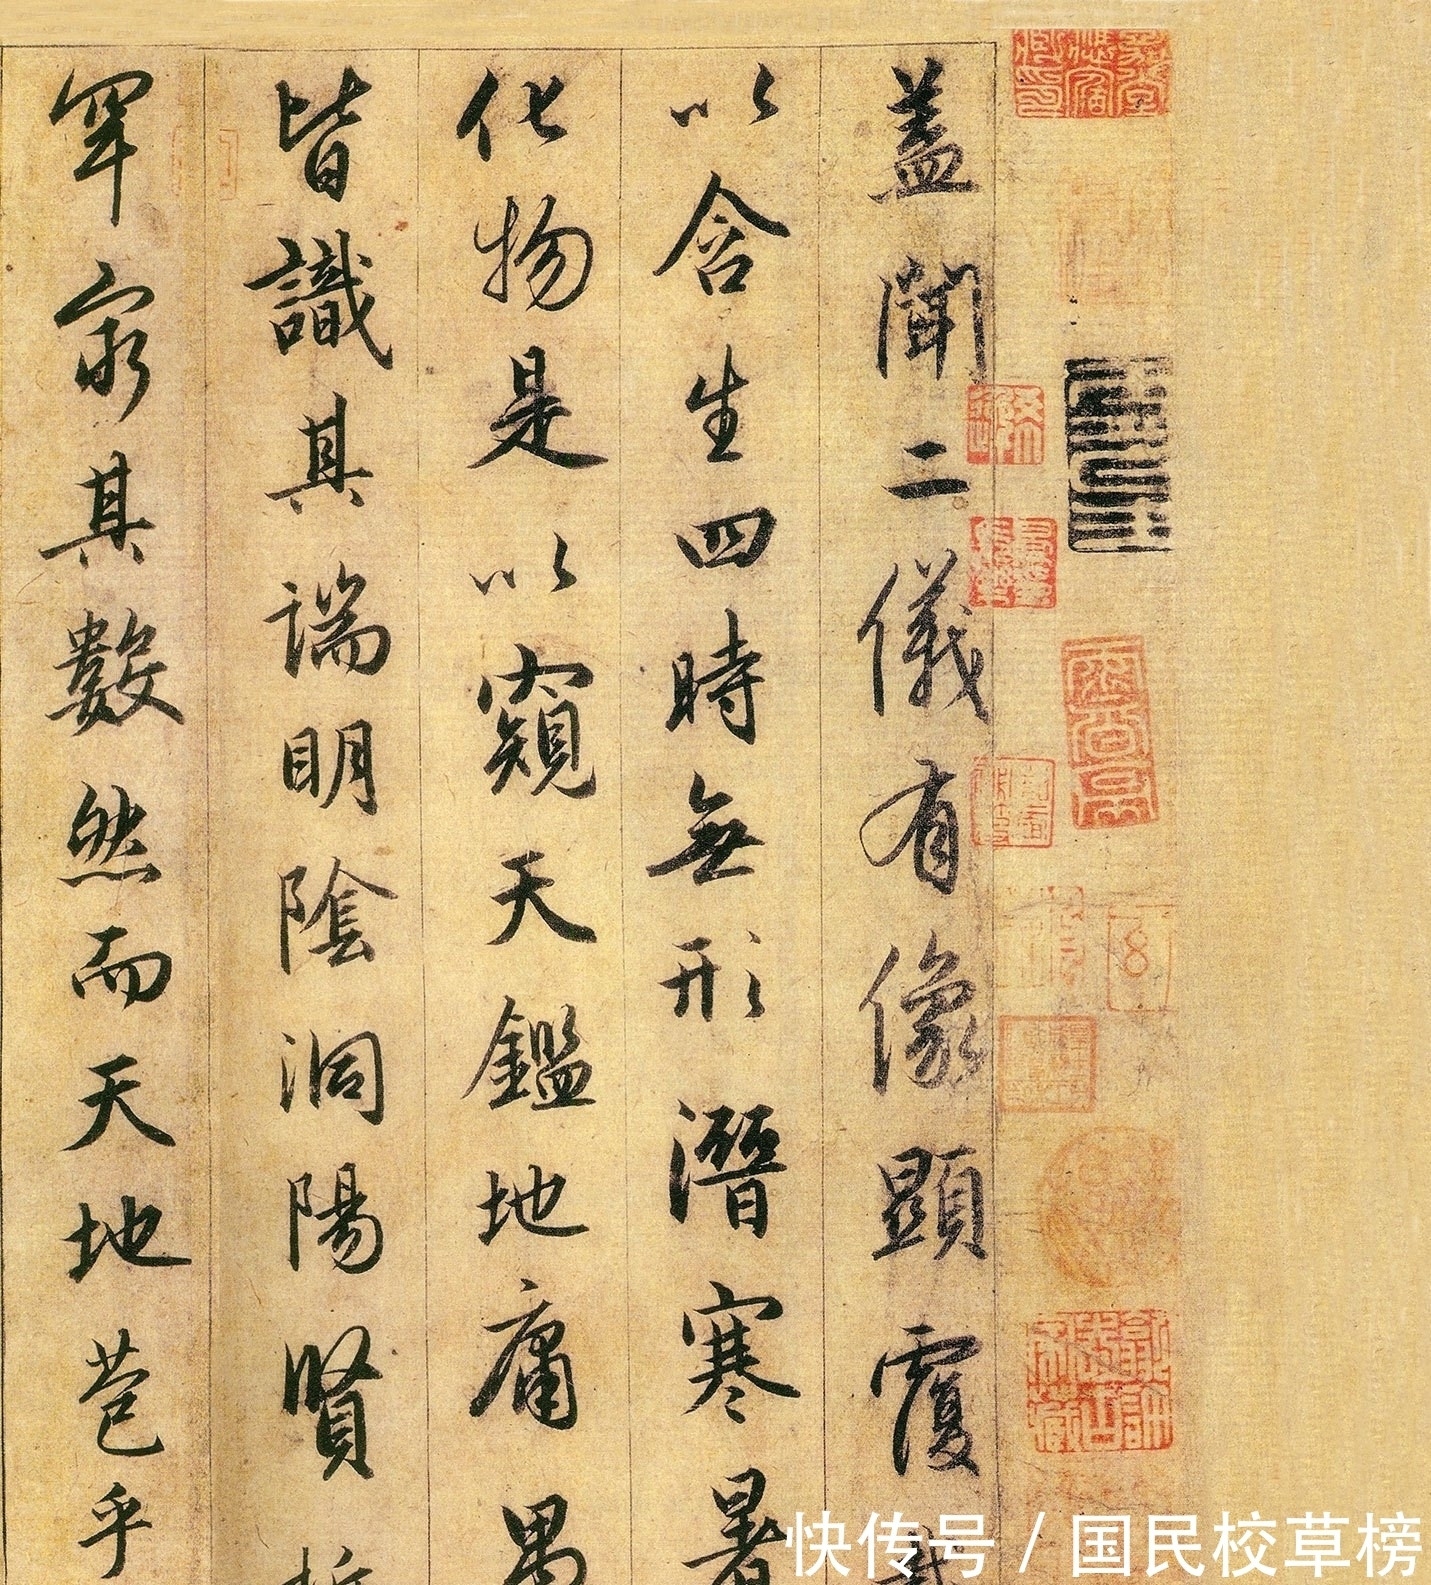 蓋聞二儀有像顯覆載
以含生四時無形潛寒暑
化物是以窺天鑑地庸愚
皆識其端明陰洞陽賢哲
罕窮其數然而天地苞乎
快传号 / 国民校草榜